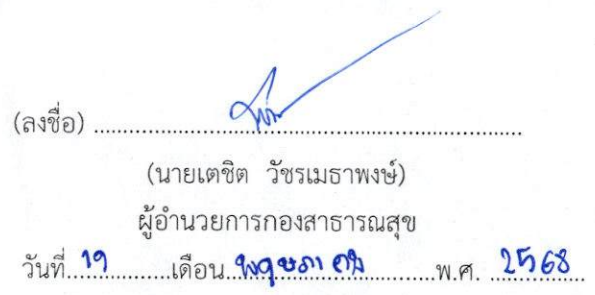 (ลงชื่อ) ........................................................................
(นายเตชิต วัชรเมธาพงษ์)
ผู้อำนวยการกองสาธารณสุข
วันที่ 19 เดือน พฤษภาคม พ.ศ. 2568